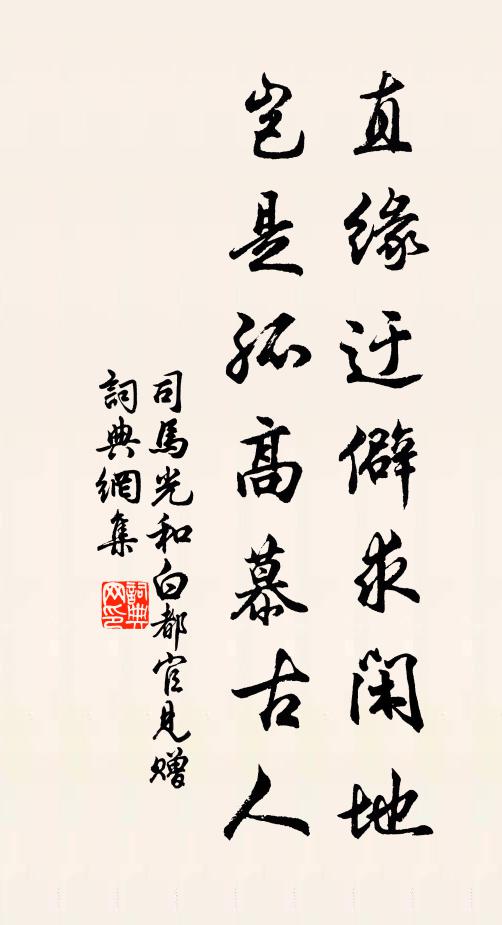 直缘迂僻求闲地
岂是孤高慕古人
司馬光和白都官見贈
詞典網集
詞典网印